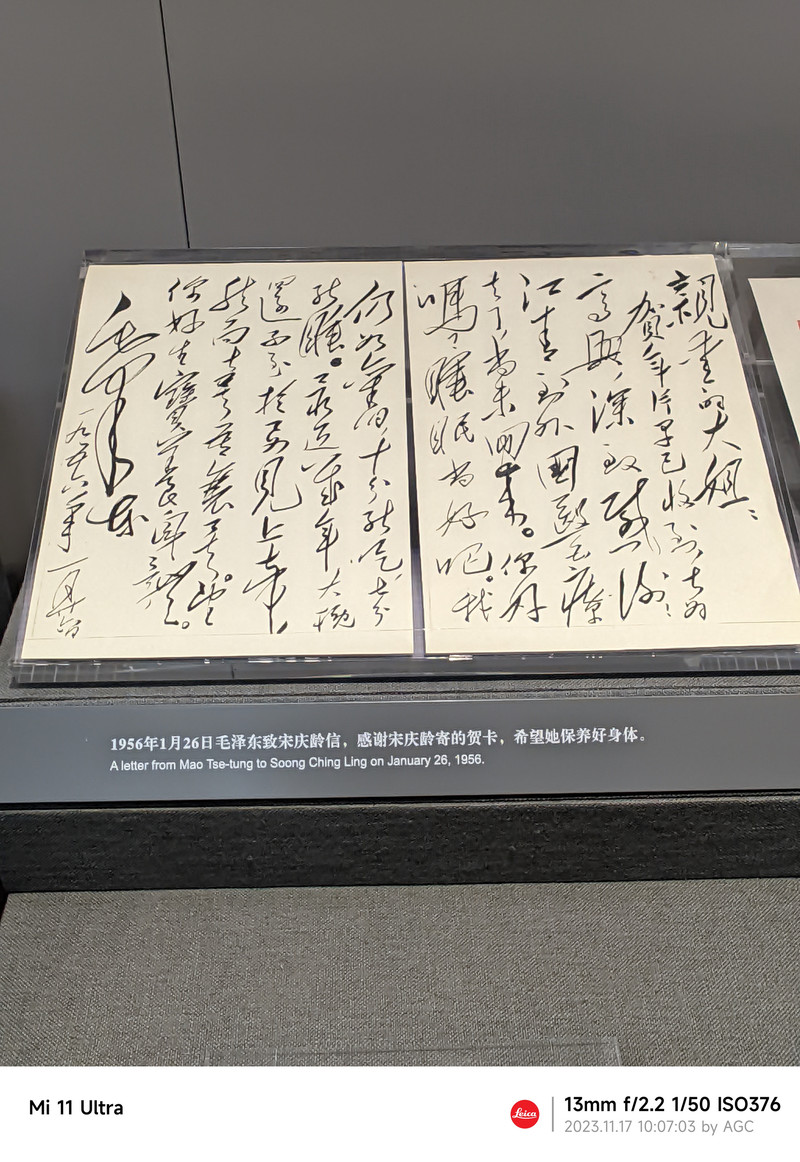 親愛的大姐：
賀年片早已收到，甚為
高興，深致感謝！
江青到外國醫療
去了，尚未回來。你好
嗎？睡眠尚好吧。我
仍如舊日，十分能吃，七分
能睡。最近幾年大概
還不至於要見上帝，
然而甚矣吾衰矣。望
你好生寶養身體。
毛澤東
一九五六年一月廿六日
1956年1月26日毛泽东致宋庆龄信，感谢宋庆龄寄的贺卡，希望她保养好身体。
A letter from Mao Tse-tung to Soong Ching Ling on January 26, 1956.
Mi 11 Ultra
Leica
13mm f/2.2 1/50 ISO376
2023.11.17 10:07:03 by AGC